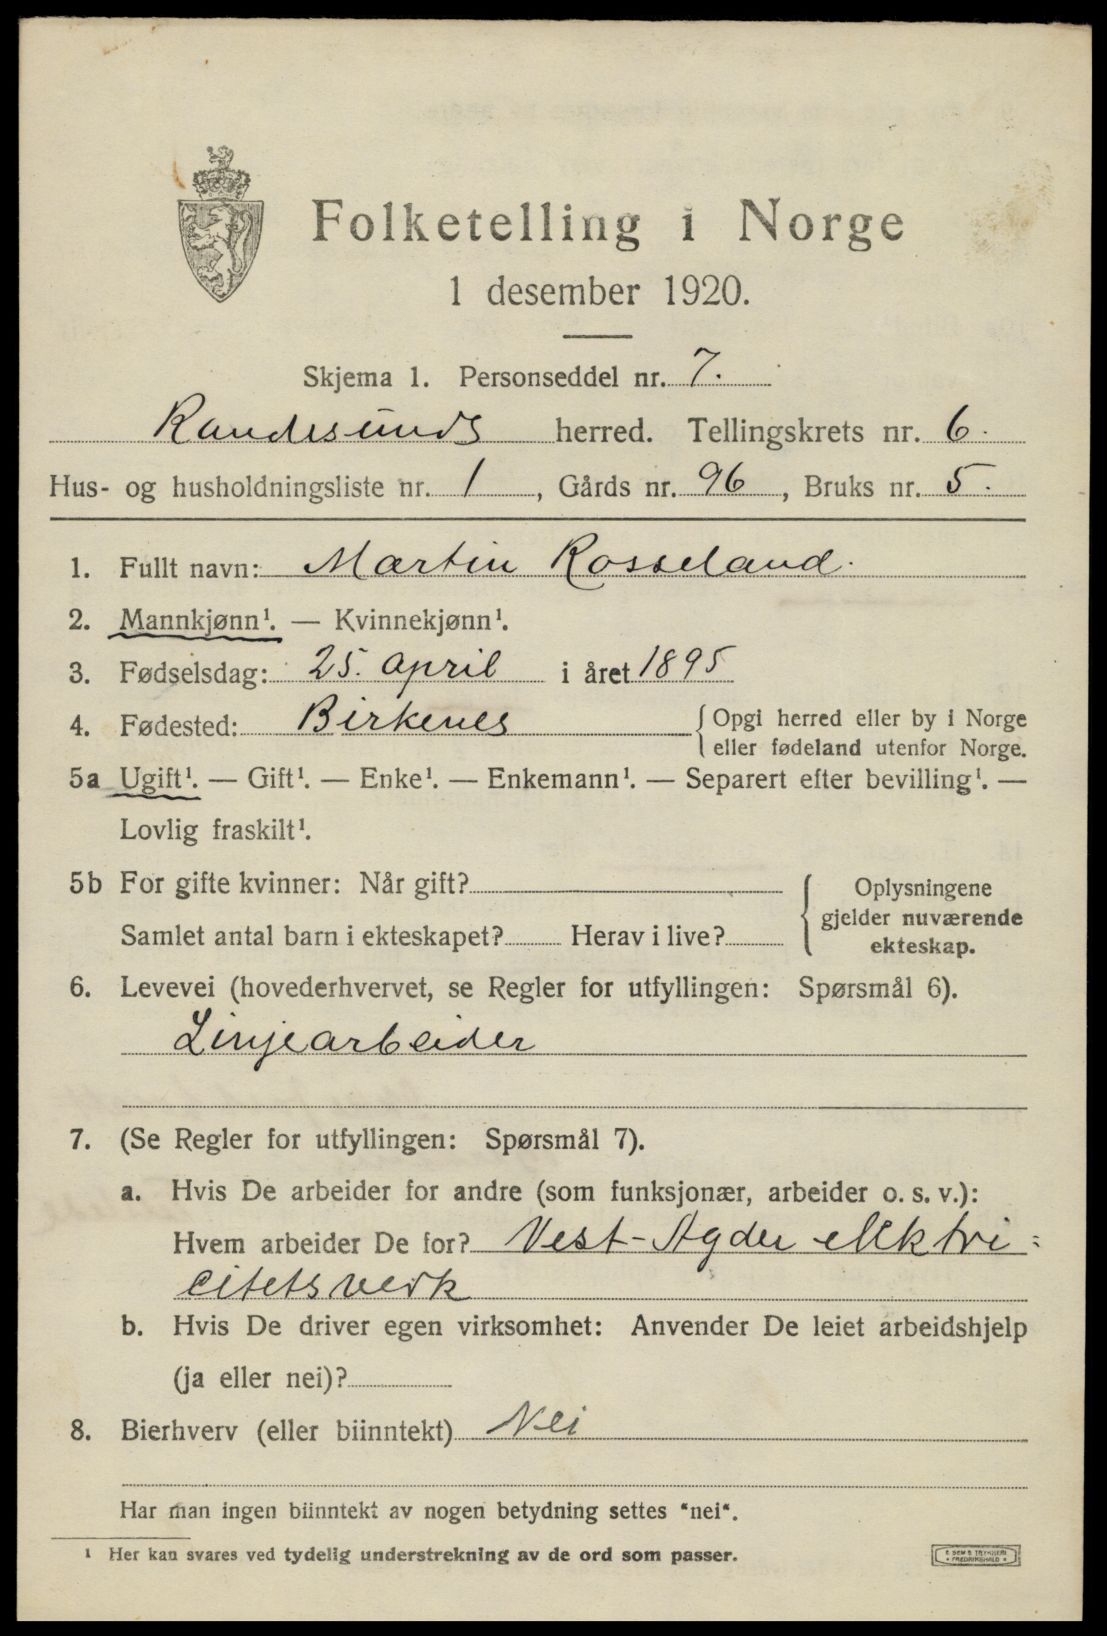 Folketelling i Norge
1 desember 1920.
Skjema 1. Personseddel nr. 7.
Randesunds herred. Tellingskrets nr. 6.
Hus- og husholdningsliste nr. 1, Gårds nr. 96, Bruks nr. 5.
1. Fullt navn: Martin Rosseland.
2. Mannkjønn¹. — Kvinnekjønn¹.
3. Fødselsdag: 25. april i året 1895
4. Fødested: Birkenes { Opgi herred eller by i Norge
eller fødeland utenfor Norge.
5a Ugift¹. — Gift¹. — Enke¹. — Enkemann¹. — Separert efter bevilling¹. —
Lovlig fraskilt¹.
5b For gifte kvinner: Når gift?
Samlet antal barn i ekteskapet? Herav i live?
{ Oplysningene
gjelder nuværende
ekteskap.
6. Levevei (hovederhvervet, se Regler for utfyllingen: Spørsmål 6).
Linjearbeider
7. (Se Regler for utfyllingen: Spørsmål 7).
a. Hvis De arbeider for andre (som funksjonær, arbeider o. s. v.):
Hvem arbeider De for? Vest-Agder elektri=
citetsverk
b. Hvis De driver egen virksomhet: Anvender De leiet arbeidshjelp
(ja eller nei)?
8. Bierhverv (eller biinntekt) Nei
Har man ingen biinntekt av nogen betydning settes "nei".
¹ Her kan svares ved tydelig understrekning av de ord som passer.
E. SEM'S TRYKKERI
• FREDRIKSHALD •